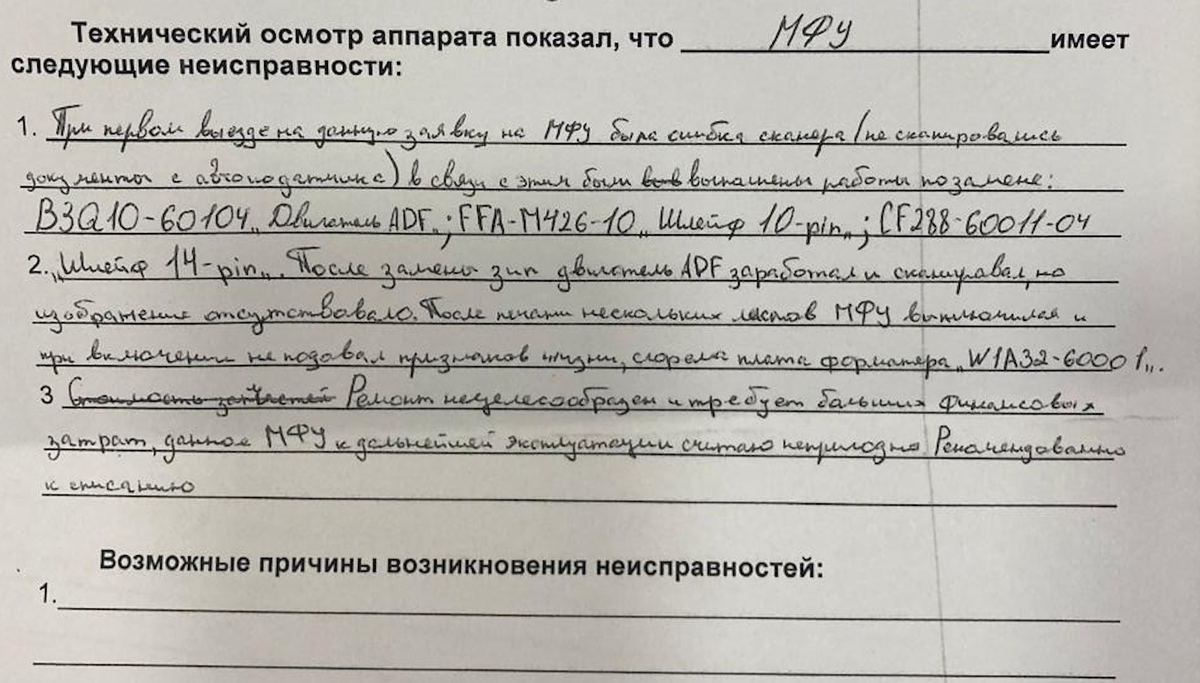 Технический осмотр аппарата показал, что МФУ имеет
следующие неисправности:
1. При первом выезде на данную заявку на МФУ была ошибка сканера (не сканировались
документы с автоподатчика) в связи с этим были выполнены работы по замене:
B3Q10-60104 „Двигатель ADF„; FFA-M426-10 „Шлейф 10-pin„; CF288-60011-04
2. „Шлейф 14-pin„. После замены зип двигатель ADF заработал и сканировал, но
изображение отсутствовало. После печати нескольких листов МФУ выключился и
при включении не подавал признаков жизни, сгорела плата форматера „W1A32-60001„.
3 Стоимость запчастей Ремонт нецелесообразен и требует больших финансовых
затрат, данное МФУ к дальнейшей эксплуатации считаю непригодно. Рекомендованно
к списанию
Возможные причины возникновения неисправностей:
1.